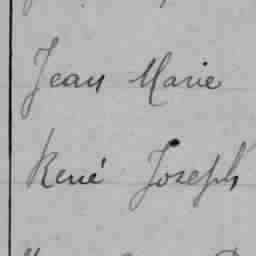 Jean Marie
René Joseph